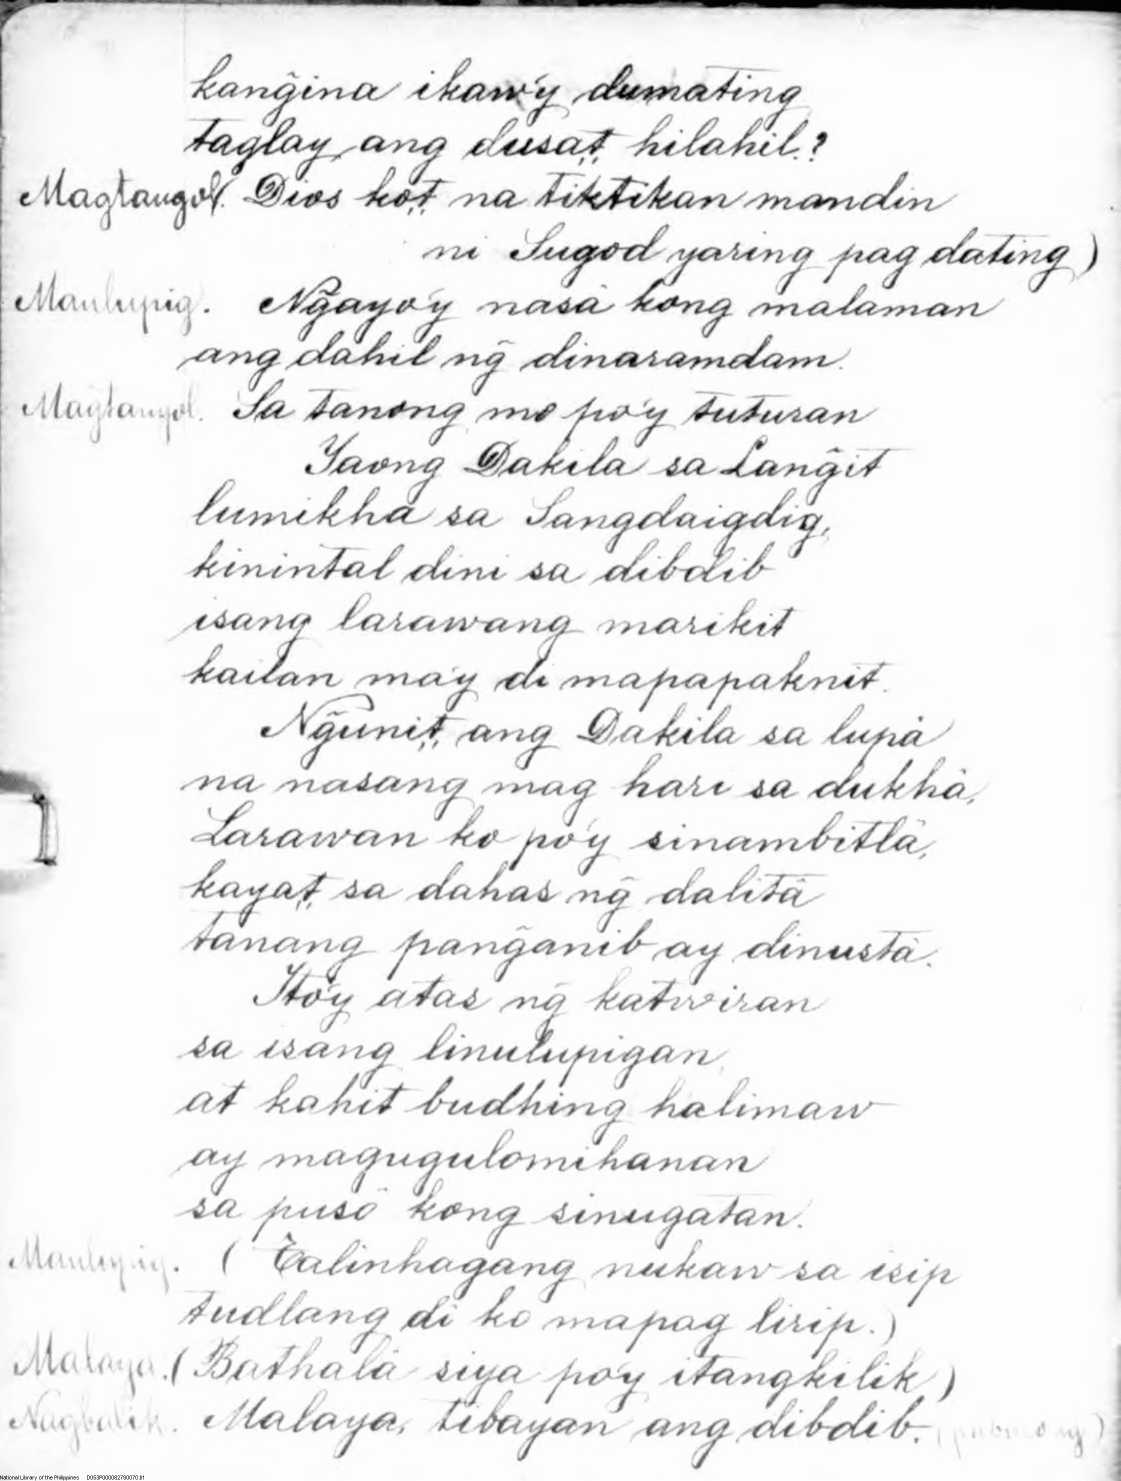 kang̃ina ikaw'y dumating
taglay ang dusa,t, hilahil.?
Magtangol. (Dios ko,t, na tiktikan mandin
ni Sugod yaring pag dating)
Maulupig. Ng̃ayo'y nasà kong malaman
ang dahil ng̃ dinaramdam.
Magtangol. Sa tanong mo po'y tuturan
Yaong Dakila sa Lang̃it
lumikha sa Sangdaigdig,
kinintal dini sa dibdib
isang larawang marikit
kailan ma'y di mapapaknit.
Ng̃uni,t, ang Dakila sa lupà
na nasang mag hari sa dukhâ,
Larawan ko po'y sinambitlâ,
kaya,t, sa dahas ng̃ dalitâ
tanang pang̃anib ay dinustà.
Ito'y atas ng̃ katwiran
sa isang linulupigan,
at kahit budhing halimaw
ay magugulomihanan
sa pusò kong sinugatan.
Maulupig. (Talinhagang nukaw sa isip
tudlang di ko mapag lirip.)
Malaya. (Bathalà siya po'y itangkilik)
Nagbalik. Malaya, tibayan ang dibdib.
National Library of the Philippines D053P000082790070.tif